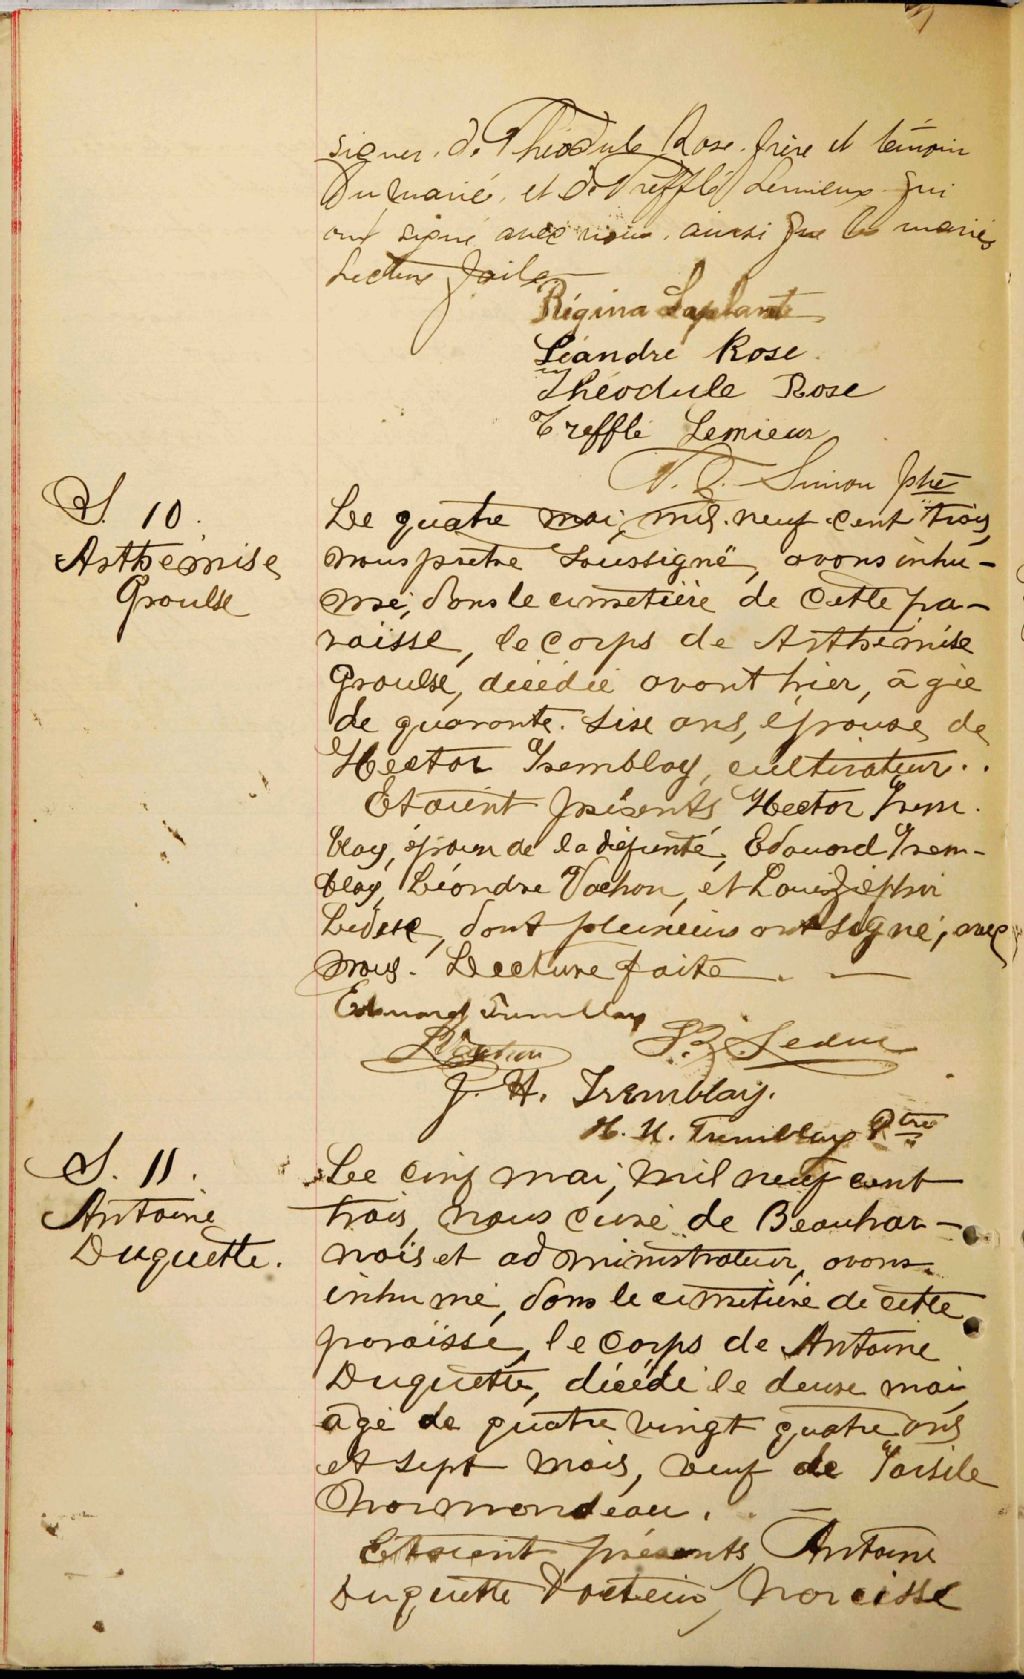 signer, de Théodule Rose frère et témoin
du marié, et de Trefflé Lemieux qui
ont signé avec nous, ainsi que les mariés
Lecture faite
Régina Laplante
Léandre Rose
Théodule Rose
Trefflé Lemieux
Simon ptre
S. 10.
Arthémise
Groulx
Le quatre mai, mil neuf cent trois,
nous prêtre soussigné, avons inhu-
mé, dans le cimetière de cette pa-
roisse, le corps de Arthémise
Groulx, décédée avant hier, âgée
de quarante six ans, épouse de
Hector Tremblay, cultivateur.
Etaient présents Hector Trem
blay, époux de la défunte, Edouard Trem-
blay, Léondre Vachon, et Louis Zéphir
Leduc, dont plusieurs ont signé, avec
nous. Lecture faite. —
Edouard Tremblay
L. Vachon L. Z. Leduc
J. H. Tremblay.
H. H. Tremblay Ptre
S. 11.
Antoine
Duquette.
Le cinq mai, mil neuf cent
trois, nous curé de Beauhar-
nois et administrateur, avons
inhumé, dans le cimetière de cette
paroisse, le corps de Antoine
Duquette, décédé le deux mai,
âgé de quatre vingt quatre ans
et sept mois, veuf de Tarsile
Normandeau.
Etaient présents Antoine
Duquette Docteur, Narcisse